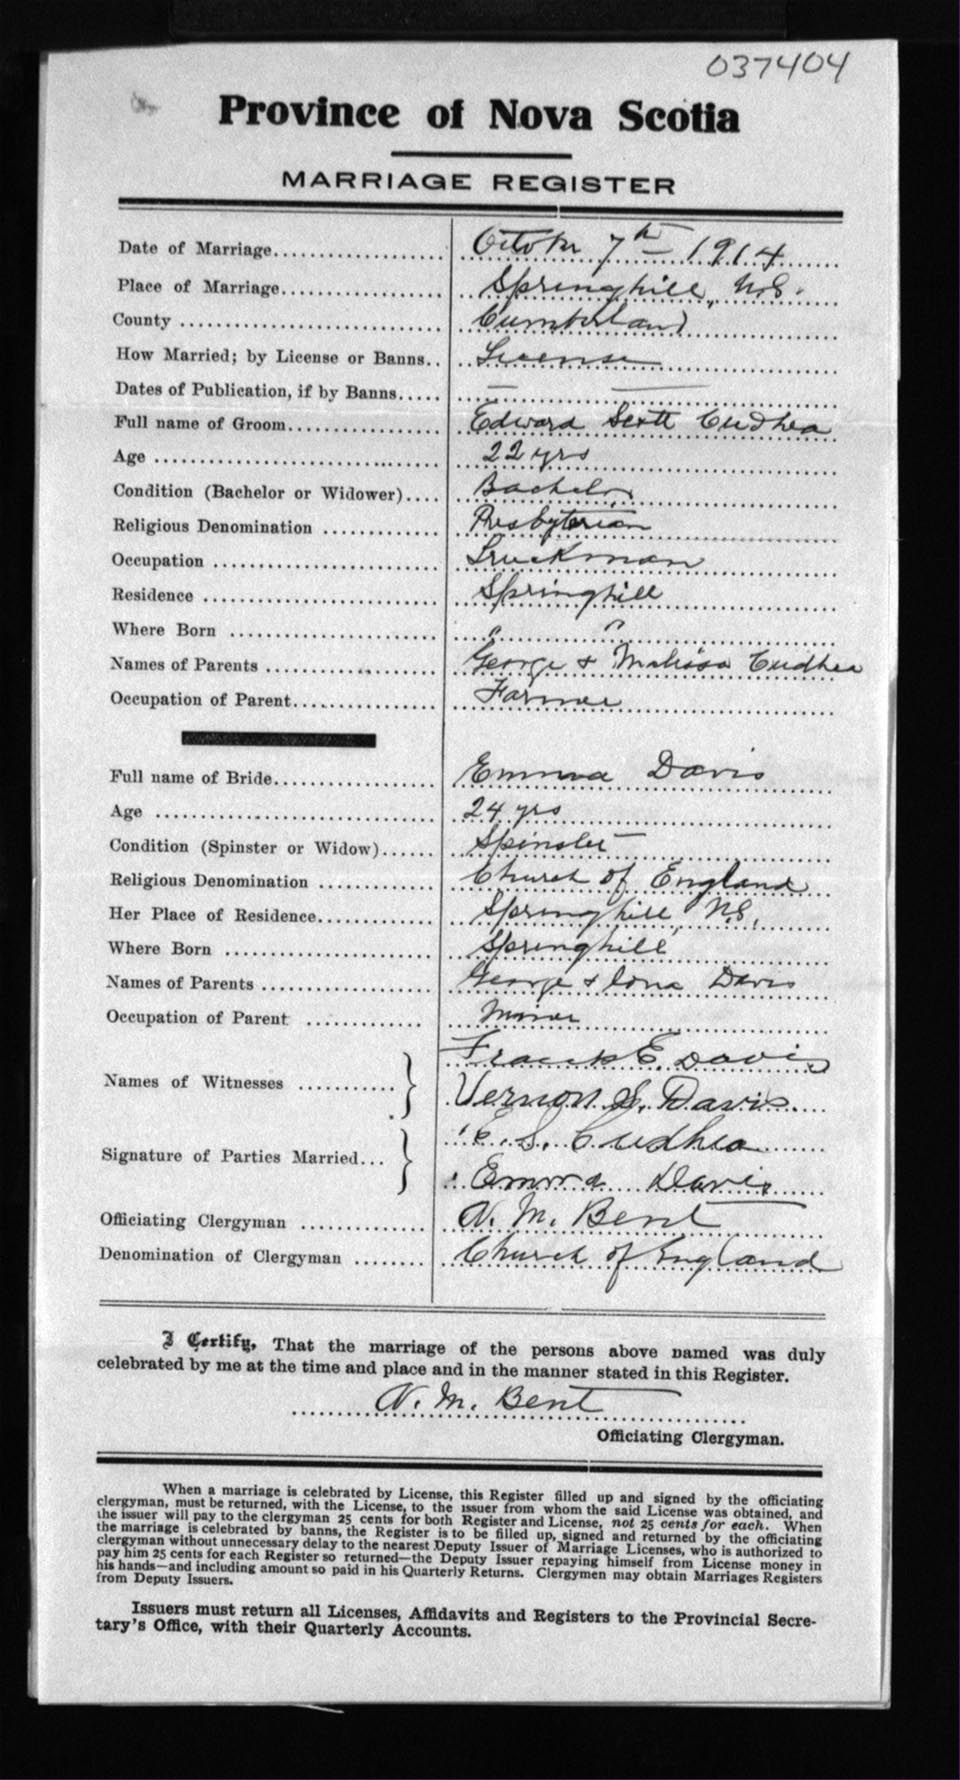 037404
Province of Nova Scotia
MARRIAGE REGISTER
Date of Marriage.................... October 7th 1914
Place of Marriage................... Springhill, N.S.
County ............................. Cumberland
How Married; by License or Banns.. License
Dates of Publication, if by Banns..... — —
Full name of Groom.................. Edward Scott Cudhea
Age ................................ 22 yrs
Condition (Bachelor or Widower).... Bachelor
Religious Denomination ............. Presbyterian
Occupation ......................... Truckman
Residence .......................... Springhill
Where Born ......................... " "
Names of Parents ................... George & Malissa Cudhea
Occupation of Parent................ Farmer
Full name of Bride.................. Emma Davis
Age ................................ 24 yrs
Condition (Spinster or Widow)...... Spinster
Religious Denomination ............. Church of England
Her Place of Residence.............. Springhill, N.S.
Where Born ......................... Springhill
Names of Parents ................... George & Iona Davis
Occupation of Parent ............. Miner
Frank E. Davis
Names of Witnesses ...........
Vernon S. Davis.
E. S. Cudhea
Signature of Parties Married...
Emma Davis
Officiating Clergyman .............. W. M. Bent
Denomination of Clergyman ........ Church of England
I Certify, That the marriage of the persons above named was duly
celebrated by me at the time and place and in the manner stated in this Register.
W. M. Bent
Officiating Clergyman.
When a marriage is celebrated by License, this Register filled up and signed by the officiating
clergyman, must be returned, with the License, to the issuer from whom the said License was obtained, and
the issuer will pay to the clergyman 25 cents for both Register and License, not 25 cents for each. When
the marriage is celebrated by banns, the Register is to be filled up, signed and returned by the officiating
clergyman without unnecessary delay to the nearest Deputy Issuer of Marriage Licenses, who is authorized to
pay him 25 cents for each Register so returned—the Deputy Issuer repaying himself from License money in
his hands—and including amount so paid in his Quarterly Returns. Clergymen may obtain Marriages Registers
from Deputy Issuers.
Issuers must return all Licenses, Affidavits and Registers to the Provincial Secre-
tary's Office, with their Quarterly Accounts.